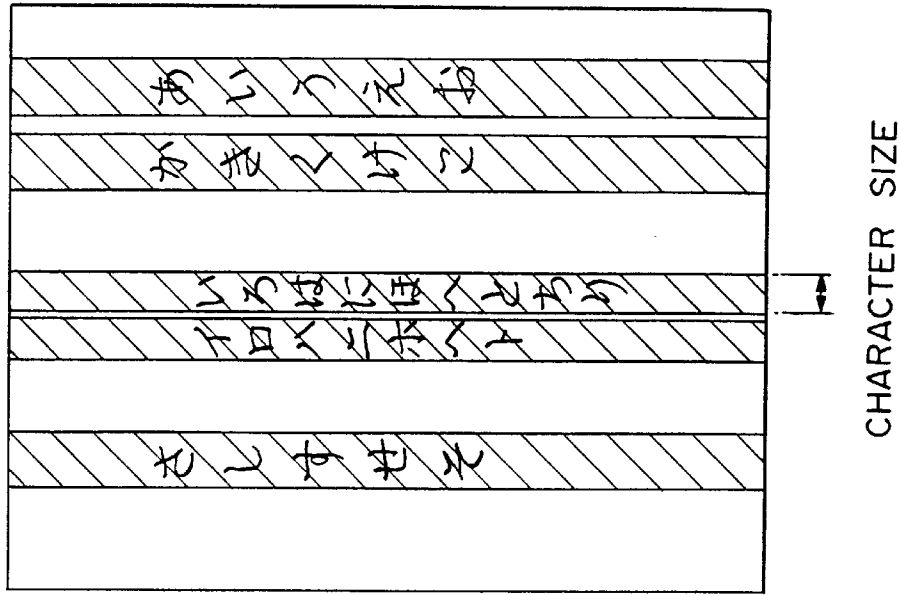 あいうえお
かきくけこ
いろはにほへとちり
イロハニホヘト
さしすせそ
CHARACTER SIZE